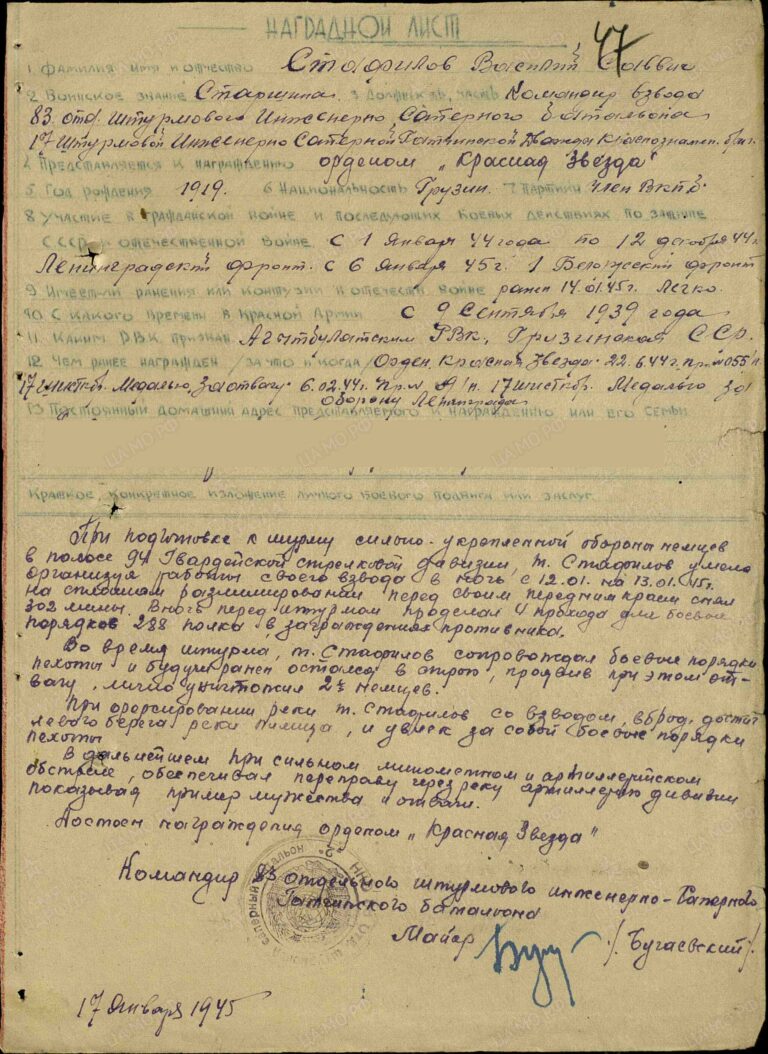 НАГРАДНОЙ ЛИСТ
47
1. Фамилия имя и отчество Стафилов Василий Саввич
2 Воинское звание Старшина 3 Должность, часть Командир взвода
83. отд. Штурмового Инженерно Саперного батальона
17 Штурмовой Инженерно Саперной Гатчинской Дважды Краснознамен. бриг.
4 Представляется к награждению орденом „Красная Звезда"
5 Год рождения 1919. 6 Национальность Грузин 7 Партийн Член ВКПб
8 Участие в гражданской войне и последующих боевых действиях по защите
СССР и отечественной войне с 1 Января 44 года по 12 декабря 44 г
Ленинградский фронт. с 6 Января 45 г. 1 Белорусский фронт
9 Имеет ли ранения или контузии в отечеств войне ранен 14.01.45г. Легко.
10 С какого времени в Красной Армии с 9 Сентября 1939 года
11. Каким РВК призван РВК, Грузинская ССР.
12. Чем ранее награжден /за что и когда/ Орден. Красная Звезда. 22.6.44г. пр. №055/н
17 шисткбр. Медалью, За отвагу" 6.02.44г. Пр. № 17 шисткбр. Медалью за
оборону Ленинграда
13 Постоянный домашний адрес представляемого к награждению или его семьи
Краткое, конкретное изложение личного боевого подвига или заслуг.
При подготовке к штурму сильно-укрепленной обороны немцев
в полосе 94 Гвардейской стрелковой дивизии, т. Стафилов умело
организуя работы своего взвода в ночь с 12.01. на 13.01.45г.
на сплошном разминировании перед своим передним краем снял
302 мины. В ночь перед штурмом проделал 4 прохода для боевых
порядков 288 полка в заграждениях противника.
Во время штурма, т. Стафилов сопровождал боевые порядки
пехоты и будучи ранен остался в строю, проявив при этом от-
вагу, лично уничтожил 2х немцев.
При форсировании реки т. Стафилов со взводом, вброд, достиг
левого берега реки Пилица, и увлек за собой боевые порядки
пехоты
В дальнейшем при сильном минометном и артиллерийском
обстреле, обеспечивал переправу через реку артиллерии дивизии
показывая пример мужества и отваги.
Достоен награждения орденом „Красная Звезда"
Командир 83 отдельного штурмового инженерно-Саперного
Гатчинского батальона
Майор /Бугаевский/
17 Января 1945